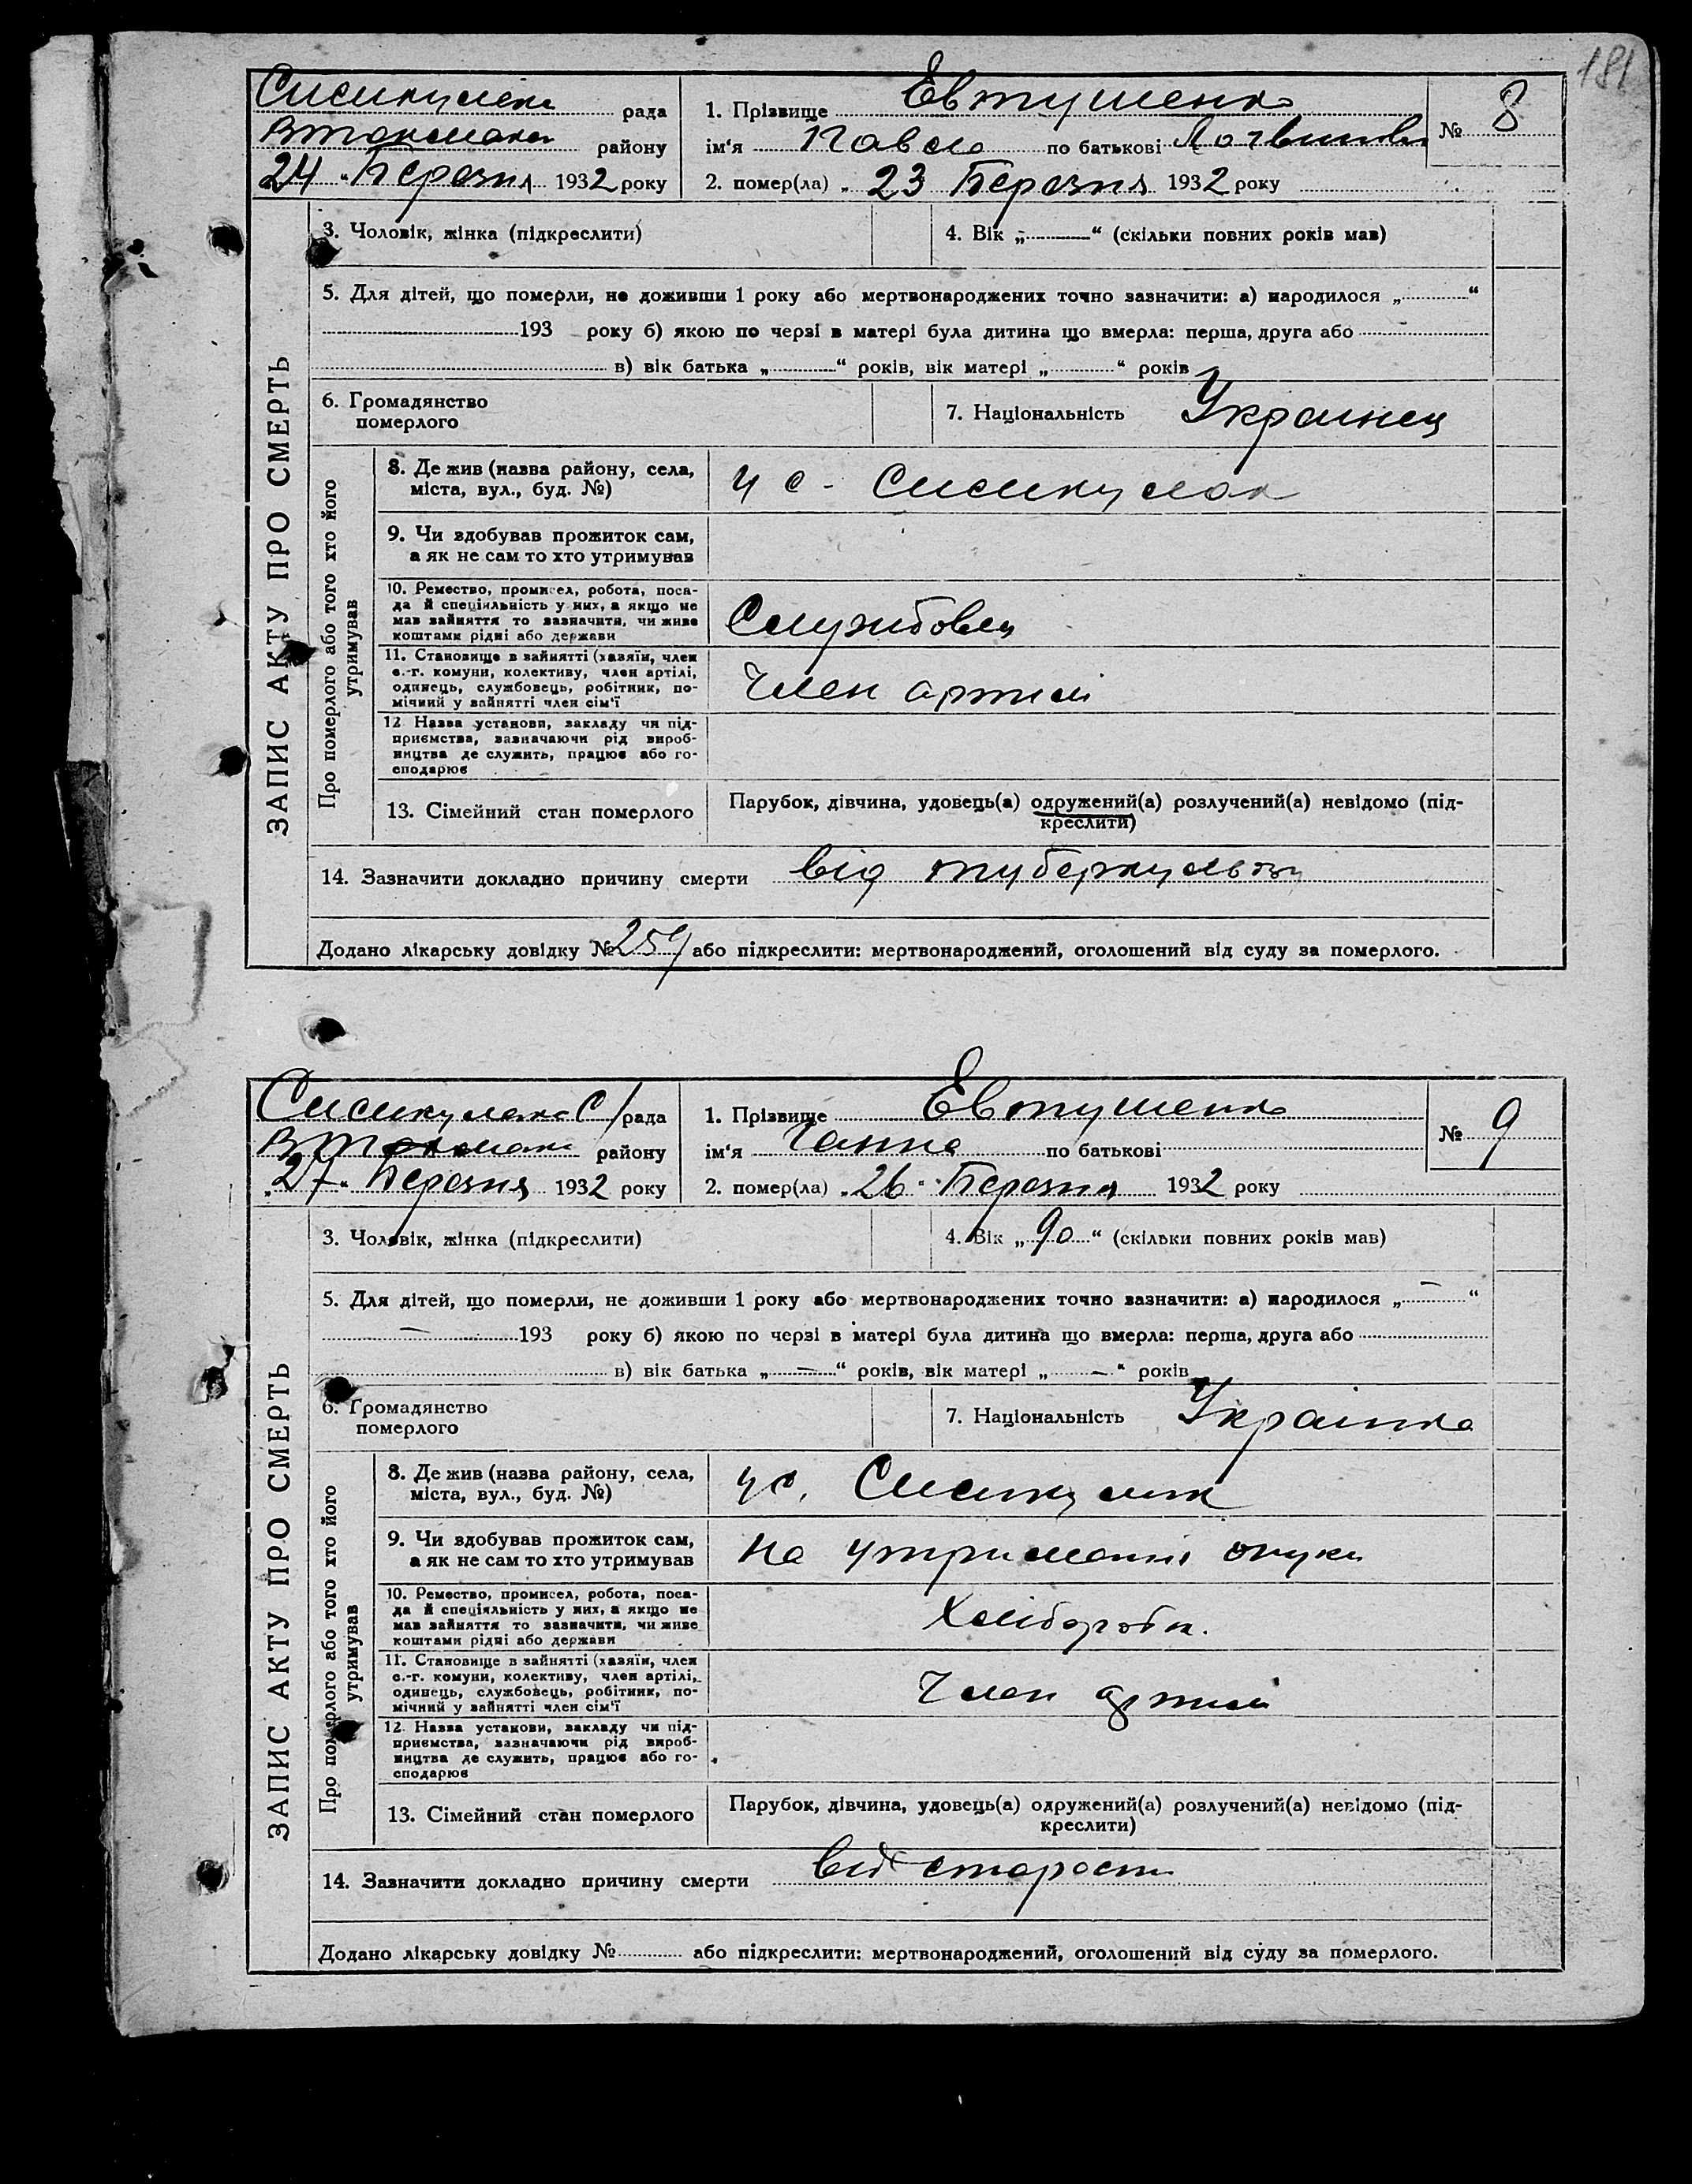 181
Сисикулака рада
Втокмака району
24 „ Березня 1932 року
1. Прізвище Евтушенко
ім'я Павло по батькові Логвинов
№ 8
2. помер(ла) „ 23 Березня 1932 року
ЗАПИС АКТУ ПРО СМЕРТЬ
3. Чоловік, жінка (підкреслити)
4. Вік „ “ (скільки повних років мав)
5. Для дітей, що померли, не доживши 1 року або мертвонароджених точно зазначити: а) народилося „ “
193 року б) якою по черзі в матері була дитина що вмерла: перша, друга або
в) вік батька „ “ років, вік матері „ “ років
6. Громадянство
померлого
7. Національність Украинец
Про померлого або того хто його
утримував
8. Де жив (назва району, села,
міста, вул., буд. №)
у с - Сисикулак
9. Чи здобував прожиток сам,
а як не сам то хто утримував
10. Ремество, промисел, робота, поса-
да й спеціяльність у них, а якщо не
мав зайняття то зазначити, чи живе
коштами рідні або держави
Службовец
11. Становище в зайнятті (хазяїн, член
с.-г. комуни, колективу, член артілі,
одинець, службовець, робітник, по-
мічний у зайнятті член сім'ї
Член артилі
12 Назва установи, закладу чи під-
приємства, зазначаючи рід вироб-
ництва де служить, працює або го-
сподарює
13. Сімейний стан померлого
Парубок, дівчина, удовець(а) одружений(а) розлучений(а) невідомо (під-
креслити)
14. Зазначити докладно причину смерти від туберкульозу
Додано лікарську довідку № 257 або підкреслити: мертвонароджений, оголошений від суду за померлого.
Сисикулака С/рада
Втокмака району
„27“ Березня 1932 року
1. Прізвище Евтушенко
ім'я Ганна по батькові
№ 9
2. помер(ла) „26“ Березня 1932 року
ЗАПИС АКТУ ПРО СМЕРТЬ
3. Чоловік, жінка (підкреслити)
4. Вік „ 90 “ (скільки повних років мав)
5. Для дітей, що померли, не доживши 1 року або мертвонароджених точно зазначити: а) народилося „ — “
— 193 року б) якою по черзі в матері була дитина що вмерла: перша, друга або
в) вік батька „ — “ років, вік матері „ — “ років
6. Громадянство
померлого
7. Національність Українка
Про померлого або того хто його
утримував
8. Де жив (назва району, села,
міста, вул., буд. №)
у с. Сисикулак
9. Чи здобував прожиток сам,
а як не сам то хто утримував
на утриманні онуки
10. Ремество, промисел, робота, поса-
да й спеціяльність у них, а якщо не
мав зайняття то зазначити, чи живе
коштами рідні або держави
Хлібороби.
11. Становище в зайнятті (хазяїн, член
с.-г. комуни, колективу, член артілі,
одинець, службовець, робітник, по-
мічний у зайнятті член сім'ї
Член артилі
12 Назва установи, закладу чи під-
приємства, зазначаючи рід вироб-
ництва де служить, працює або го-
сподарює
13. Сімейний стан померлого
Парубок, дівчина, удовець(а) одружений(а) розлучений(а) невідомо (під-
креслити)
14. Зазначити докладно причину смерти від старости
Додано лікарську довідку № або підкреслити: мертвонароджений, оголошений від суду за померлого.